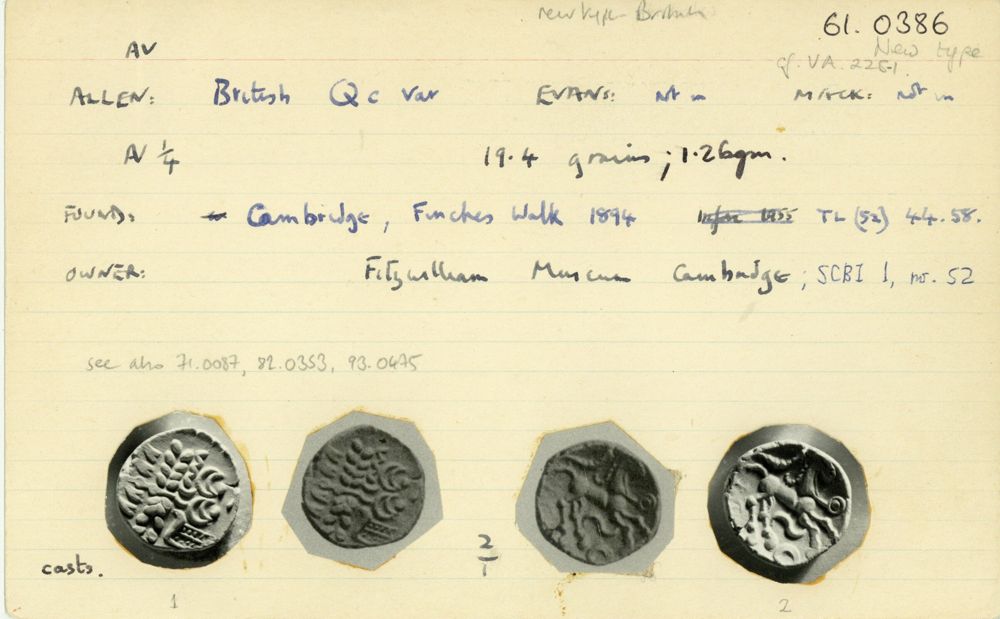 new type British
61. 0386
AV
New type
cf. VA. 225-1
ALLEN: British Qc var EVANS: not in MACK: not in
AV 1/4 19.4 grains; 1.26 gm.
FOUND: Cambridge, Finches Walk 1894 TL (52) 44.58.
OWNER: Fitzwilliam Museum Cambridge; SCBI 1, no. 52
see also 71.0087, 82.0353, 93.0475
2/1
casts.
1 2